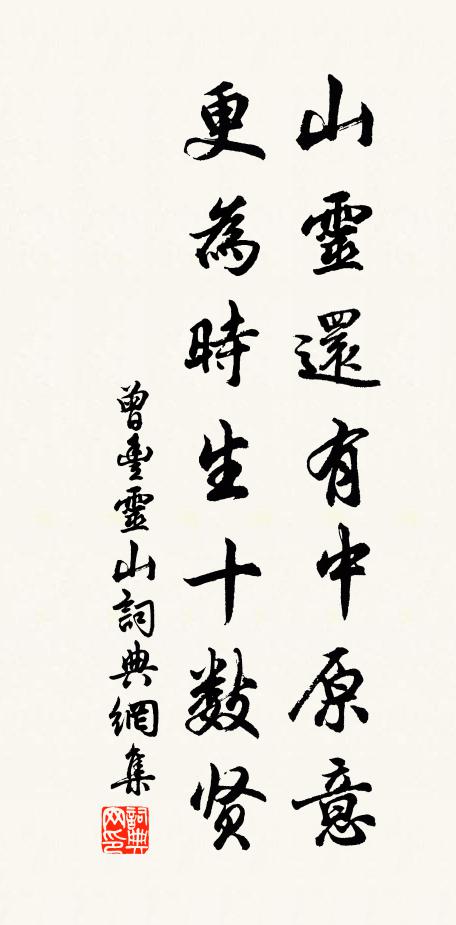 山靈還有中原意
更為時生十數贤
曾豊靈山詞典網集
詞典网印